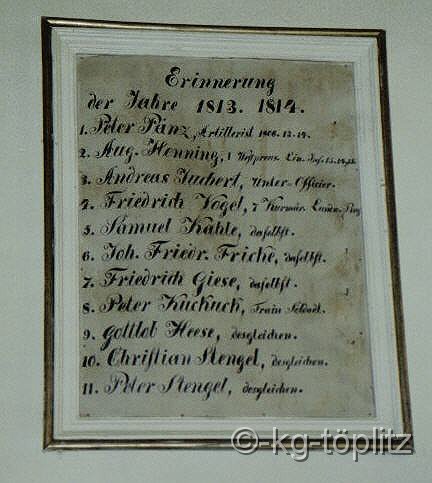 Erinnerung
der Jahre 1813. 1814.
1. Peter Pänz, Artillerist 1806. 13. 14.
2. Aug. Henning, 1 Westpreus. Lin. Inf.
3. Andreas Juchert, Unter-Officier.
4. Friedrich Vogel, 7 Kurmär. Landw. Reg.
5. Samuel Kahle, daselbst.
6. Joh. Friedr. Fricke, daselbst.
7. Friedrich Giese, daselbst.
8. Peter Kuckuck, Train Soldat.
9. Gottlob Heese, desgleichen.
10. Christian Stengel, desgleichen.
11. Peter Stengel, desgleichen.
©-kg-töplitz